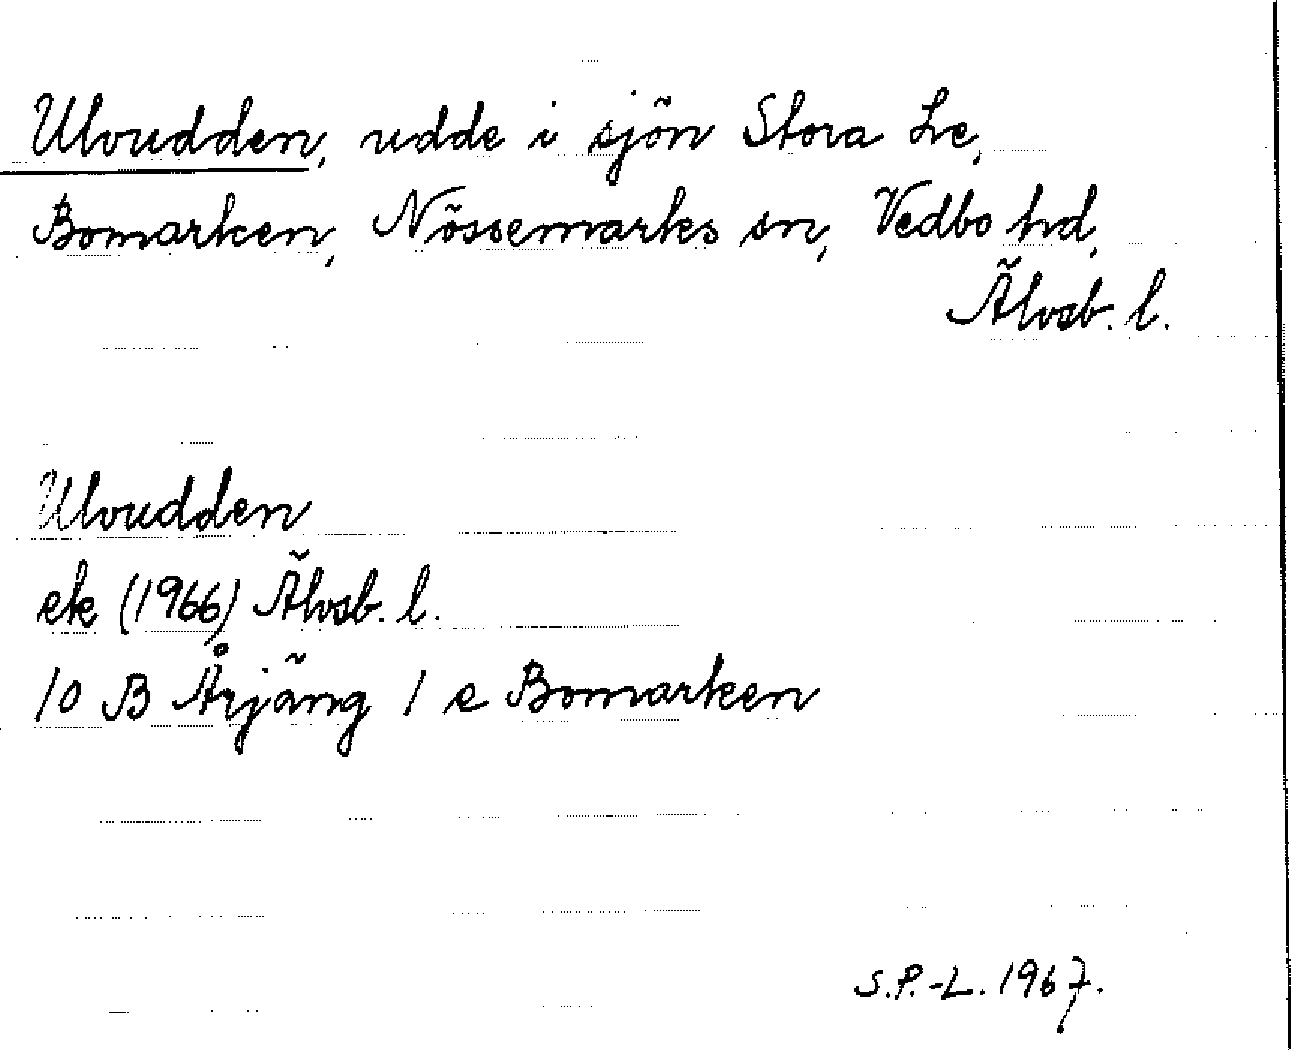 Ulvudden, udde i sjön Stora Le,
Bomarken, Nössemarks sn, Vedbo hd,
Älvsb. l.
Ulvudden
ek (1966) Älvsb. l.
10 B Årjäng 1 e Bomarken
S.P.-L. 1967.